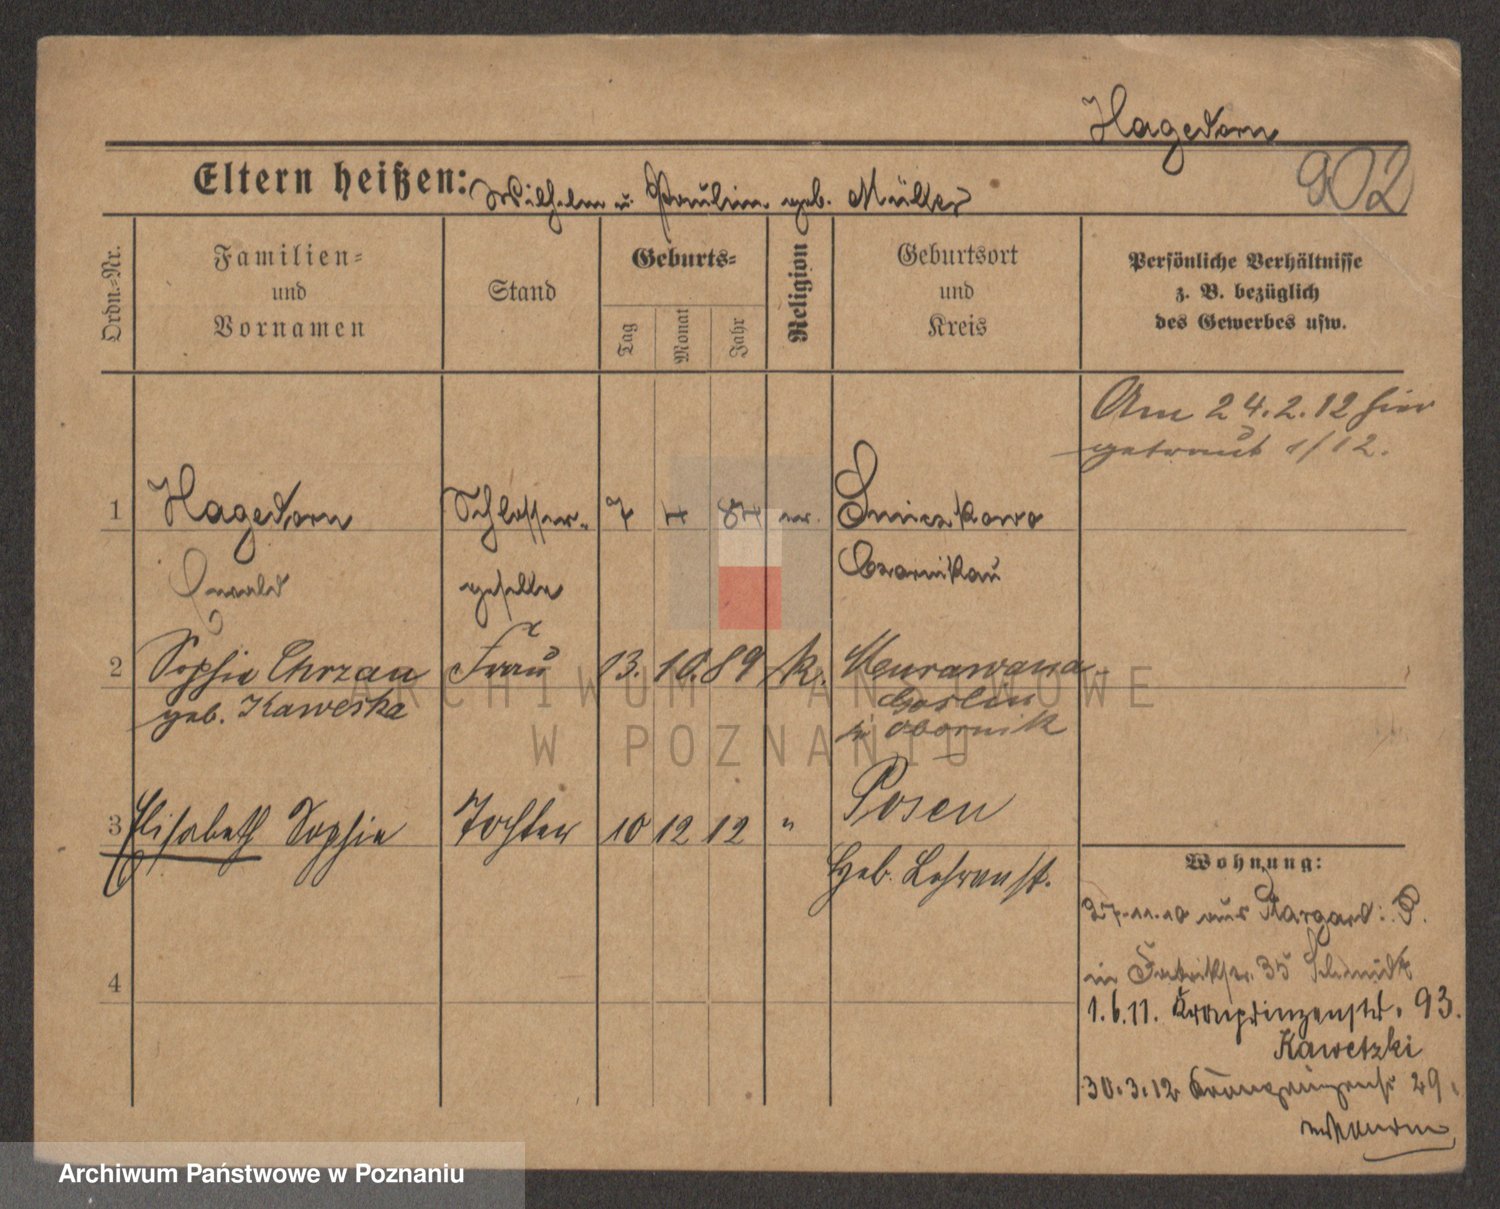 Hagedorn
902
Eltern heißen: Wilhelm u. Paulin. geb. Müller
Ordn.-Nr.
Familien-
und
Vornamen
Stand
Geburts-
Tag
Monat
Jahr
Religion
Geburtsort
und
Kreis
Persönliche Verhältnisse
z. B. bezüglich
des Gewerbes usw.
Am 24.2.12 hier
getraut 1/12.
1 Hagedorn Schlosser- 7 87 ev.
Oswald geselle Czarnikau
2 Sophie Chrzan Frau 13. 10. 89 k. Murawana
geb. Kaweska Goslin
Obornik
3 Elisabeth Sophie Tochter 10 12 12 " Posen
Heb. Lehranst.
4
Wohnung:
27.11.10 aus Stargard: P.
in Fabrikstr. 35 Schmidt
1.6.11. Kronprinzenstr. 93.
Kawetzki
30.3.12 Kronprinzenstr 29.
ARCHIWUM PAŃSTWOWE
W POZNANIU
Archiwum Państwowe w Poznaniu